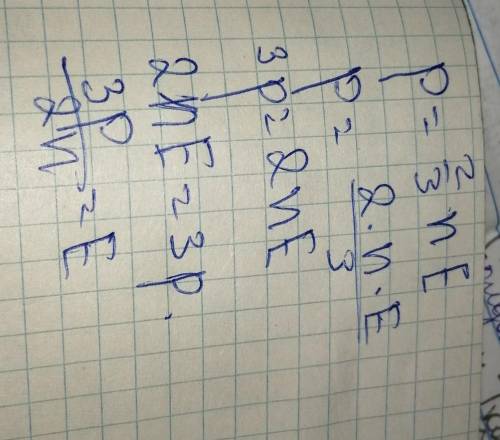 p = 2/3 nE
p = 2·n·E / 3
3p = 2nE
2nE = 3p.
3p / 2n = E